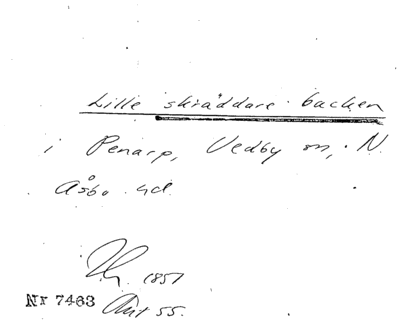 Lille skräddare backen
i Penarp, Vedby sn, N.
Åsbo hd.
1851
Nr 7463 Ant 55.